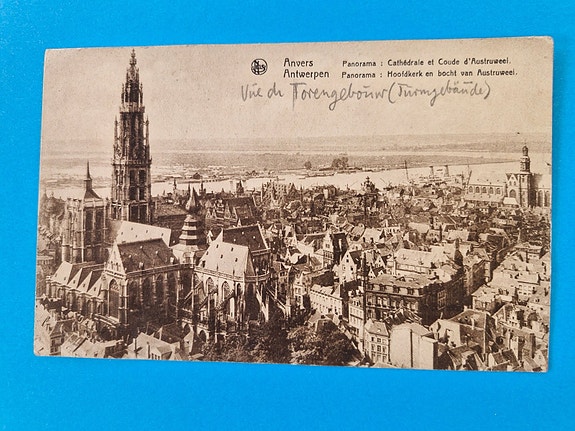 Anvers Panorama : Cathédrale et Coude d'Austruweel.
Antwerpen Panorama : Hoofdkerk en bocht van Austruweel.
Vue du Torengebouw (Turmgebäude)